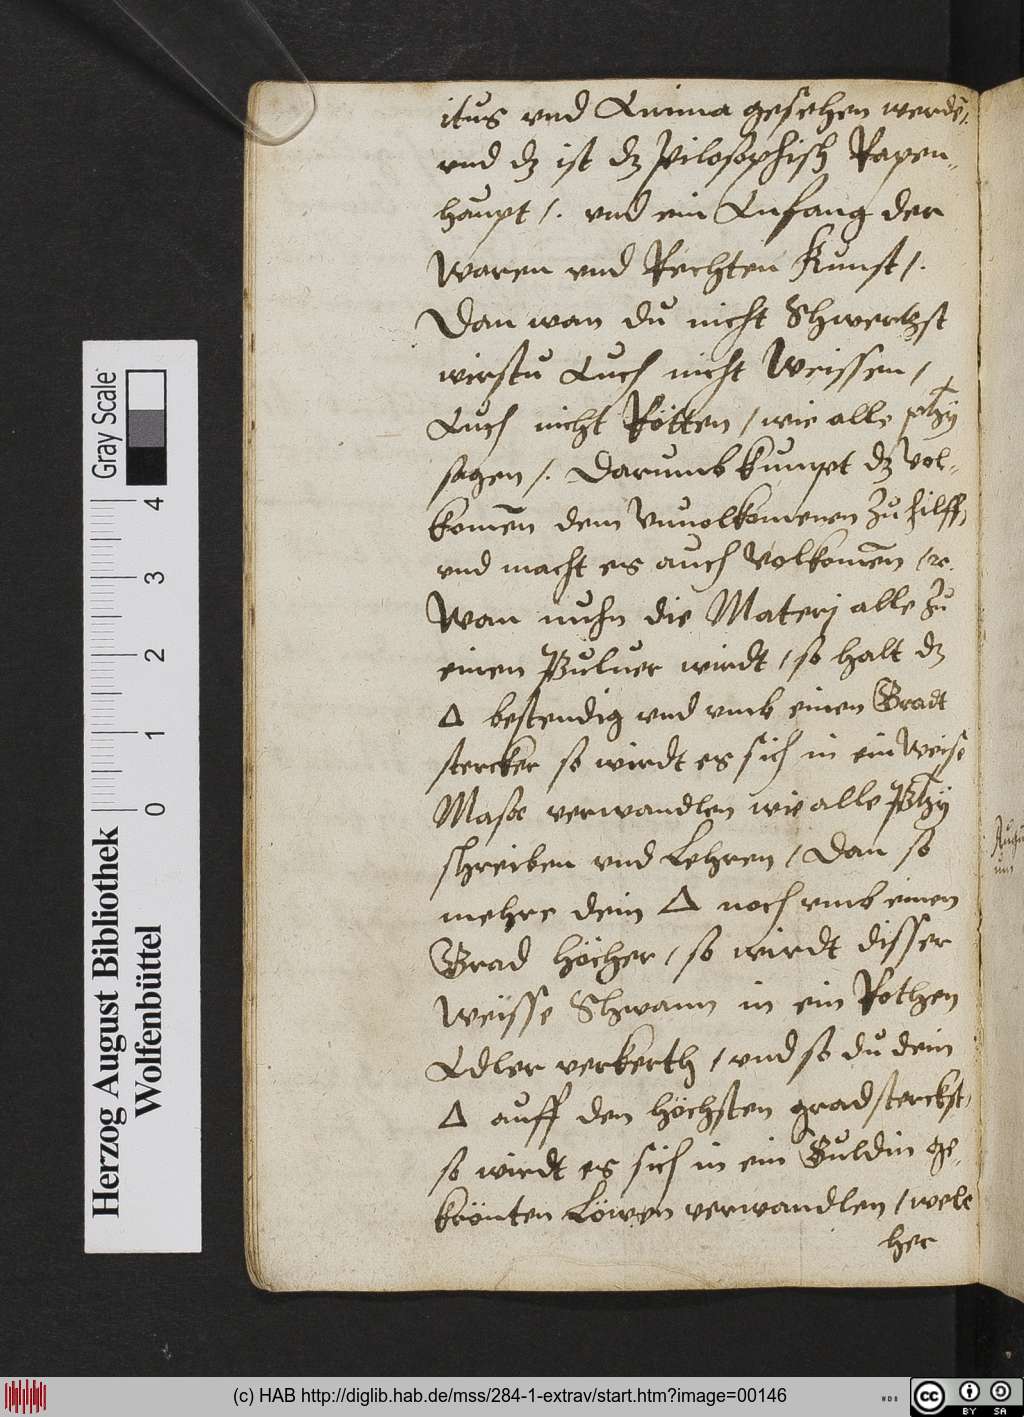 itus vnd Anima gesehen werdē /.
vnd dz ist dz Pilosophisch Rapen-
haupt /. vnd ein Anfang der
Waren vnd Rechten Kunst /.
Dan wan du nicht Schwertzst
wirstu Auch nicht Weissen /
Auch nicht Rötten / wie alle phy
sagen /. Darumb kumpt dz Vol-
komēn dem Vnuolkomenen Zu hilff,
vnd macht es auch Volkomēn / ꝛc.
Wan nuhn die Materj alle Zu
einen Puluer wirdt / so halt dz
△ bestendig vnd vmb einen Gradt
stercker so wirdt es sich in ein Weise
Mase verwandlen wie alle Phy
schreiben vnd Lehren / Dan so
mehre dein △ noch vmb einen
Grad höcher / so wirdt disser
Weisse Schwann in ein Rothen
Adler verkerth / vnd so du dein
△ auff den höchsten grad sterckst,
so wirdt es sich in ein Guldin ge-
krönten Löwen verwandlen / welc
her
Herzog August Bibliothek
Wolfenbüttel
Gray Scale
0 1 2 3 4
(c) HAB http://diglib.hab.de/mss/284-1-extrav/start.htm?image=00146
WDB
cc BY SA